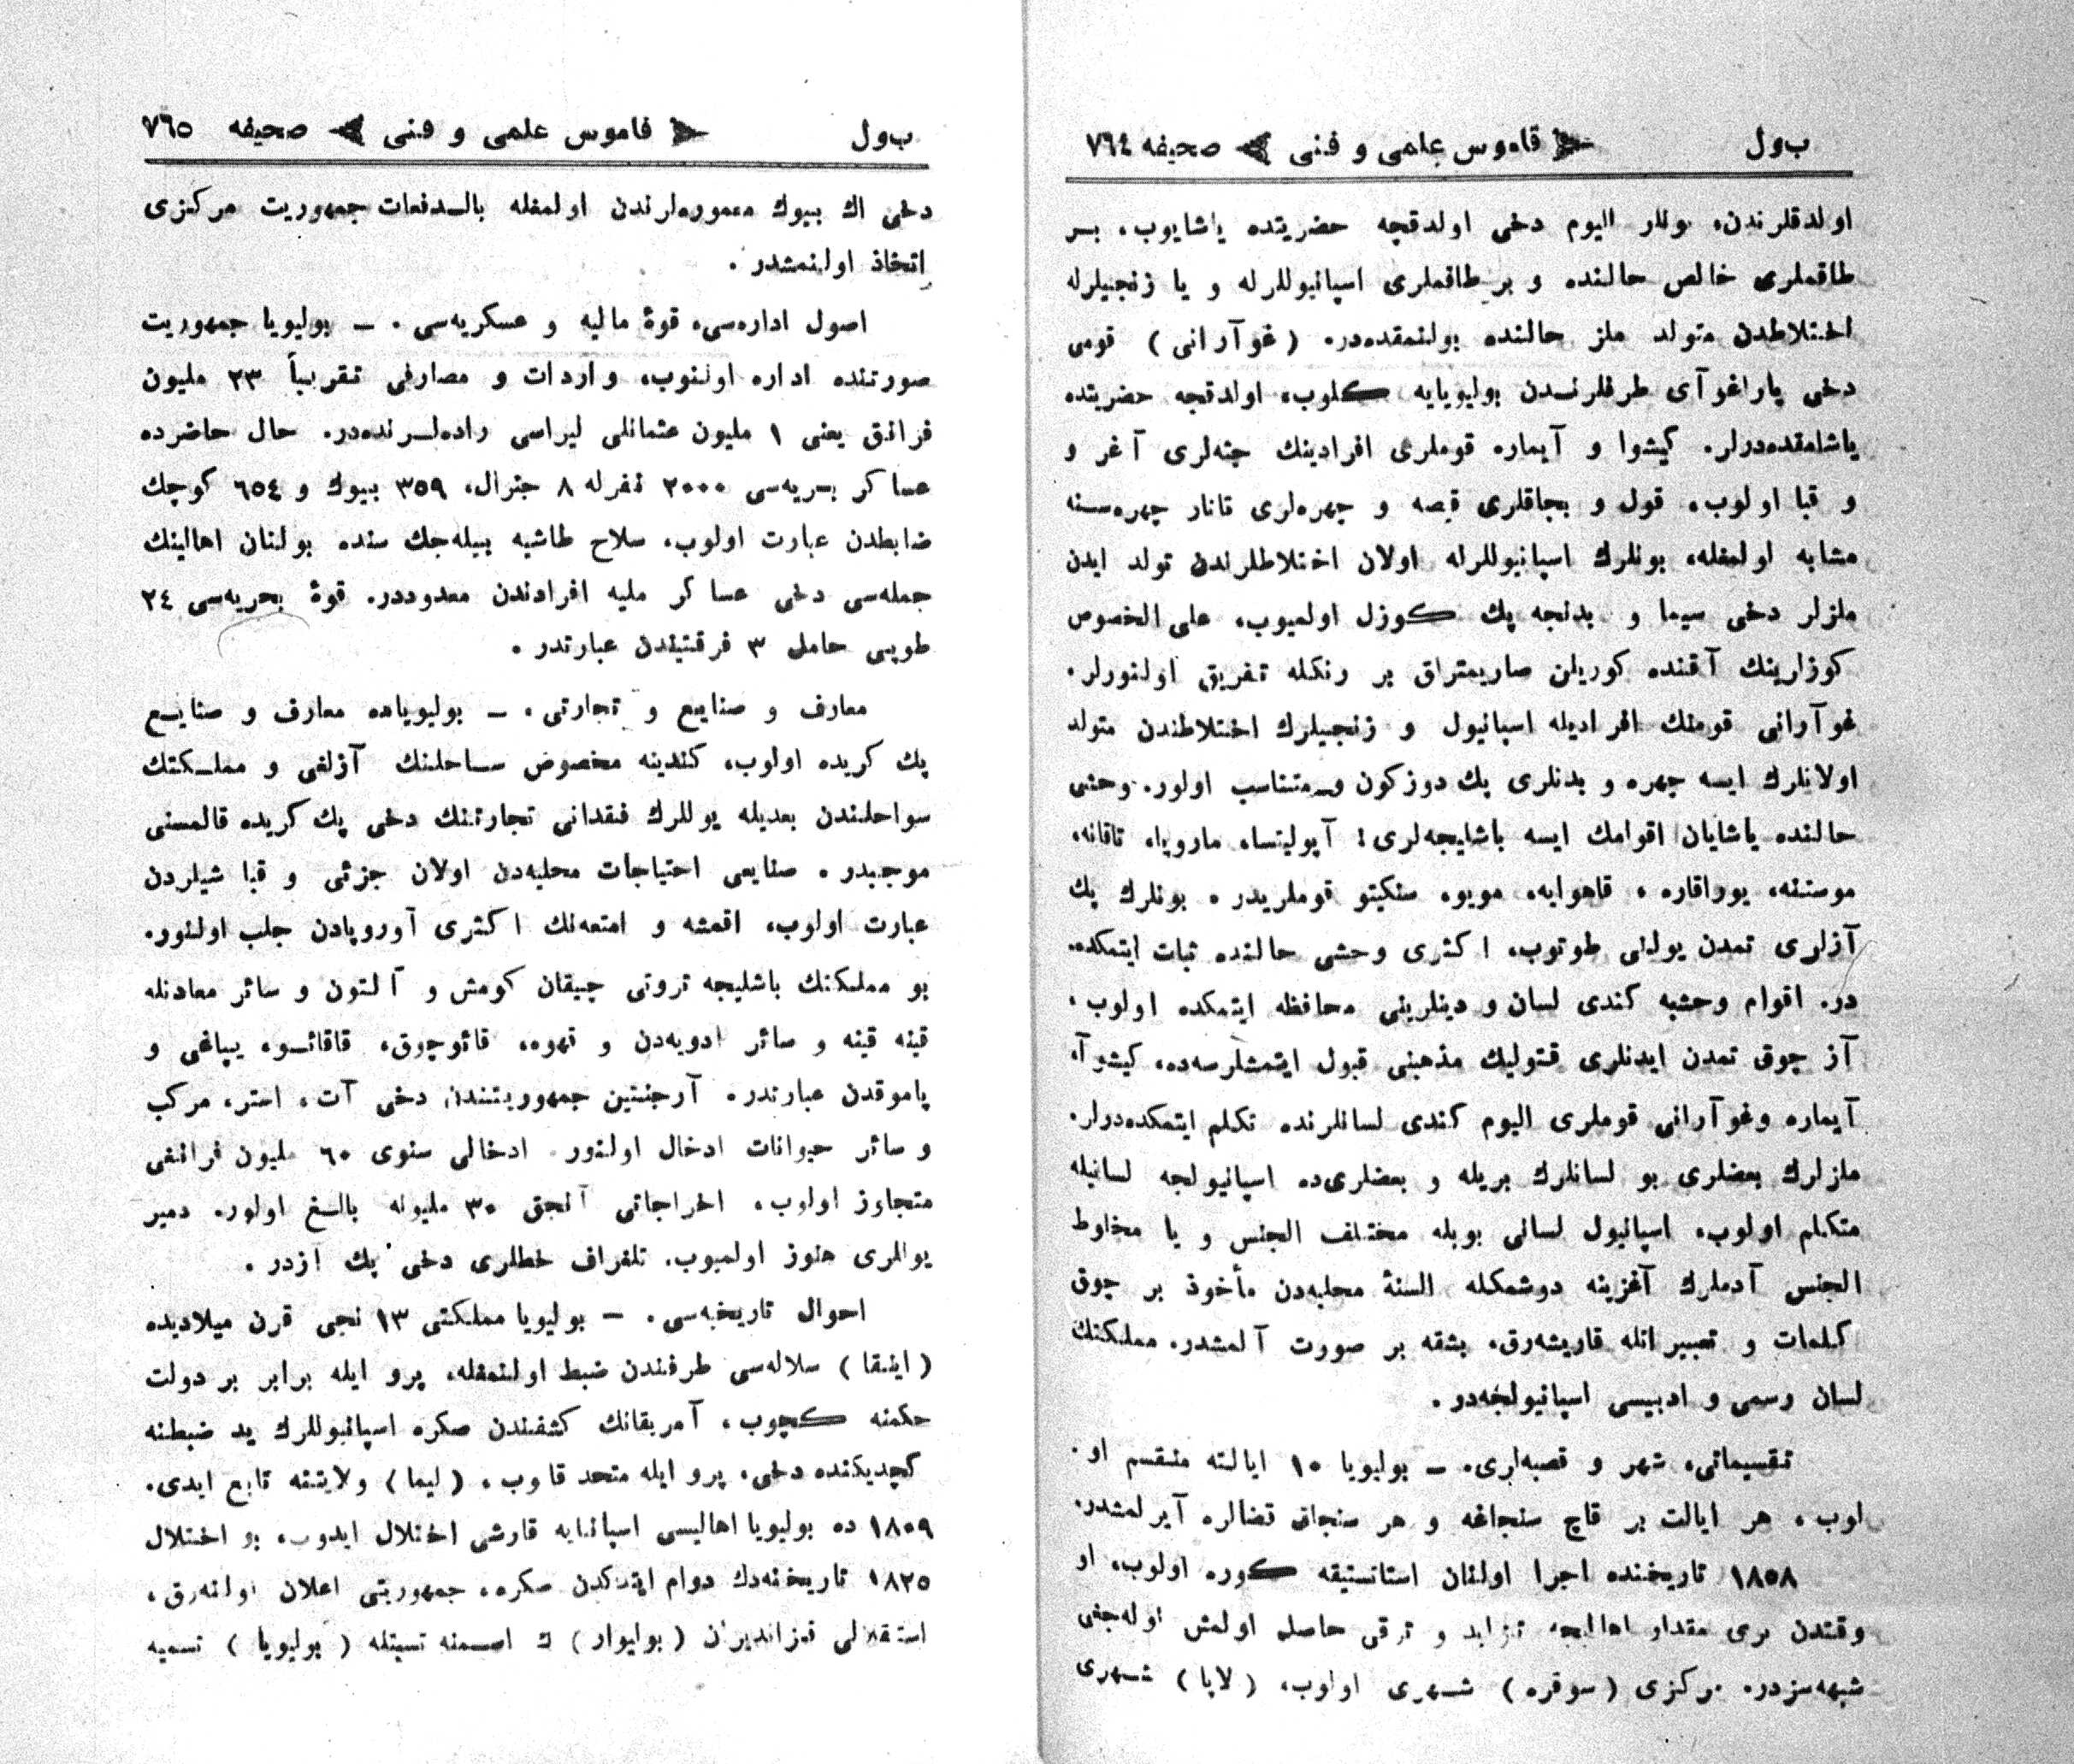 ب‌ول ‏ قاموس علمی و فنی ‏ صحیفه ٧٦٤
اولدقلرندن، بونلار الیوم دخی اولدقجه حضریتده یاشایوب، بر
طاقملری خالص حالنده و بر طاقملری اسپانیوللرله و یا زنجیلرله
اختلاطدن متولد ملز حالنده بولنمقده‌در. (غوآرانی) قومی
دخی پاراغوآی طرفلرندن بولیویایه کلوب، اولدقجه حضریتده
یاشامقده‌درلر. کیشوا و آیماره قوملری افرادینك جثه‌لری آغر و
و قبا اولوب، قول و بجاقلری قیصه و چهره‌لری تاتار چهره‌سنه
مشابه اولمغله، بونلرك اسپانیوللرله اولان اختلاطلرندن تولد ایدن
ملزلر دخی سیما و بدنجه پك کوزل اولمیوب، علی الخصوص
کوزلرینك آقنده کوریلن صاریمتراق بر رنکله تفریق اولنورلر.
غوآرانی قومنك افرادیله اسپانیول و زنجیلرك اختلاطندن متولد
اولانلرك ایسه چهره و بدنلری پك دوزکون و متناسب اولور. وحشی
حالنده یاشایان اقوامك ایسه باشلیجه‌لری: آپولیتسا، ماروپا، تاقانه،
موستنه، یوراقاره، قاهوابه، مویو، سنکیتو قوملریدر. بونلرك پك
آزلری تمدن یولنی طوتوب، اکثری وحشی حالنده ثبات ایتمکده‌
در. اقوام وحشیه کندی لسان و دینلرینی محافظه ایتمکده اولوب،
آز چوق تمدن ایدنلری قتولیك مذهبنی قبول ایتمشلرسه‌ده، کیشوآ،
آیماره وغوآرانی قوملری الیوم کندی لسانلرنده تکلم ایتمکده‌درلر.
ملزلرك بعضلری بو لسانلرك بریله و بعضلری‌ده اسپانیولجه لسانیله
متکلم اولوب، اسپانیول لسانی بویله مختلف الجنس و یا مخلوط
الجنس آدملرك آغزینه دوشمکله السنهٔ محلیه‌دن مأخوذ بر چوق
کلمات و تعبیراتله قاریشه‌رق، بشقه بر صورت آلمشدر. مملکتك
لسان رسمی و ادبیسی اسپانیولجه‌در.
تقسیماتی، شهر و قصبه‌لری. ــ بولیویا ١٥ ایالته منقسم او.
لوب، هر ایالت بر قاچ سنجاغه و هر سنجاق قضالره آیرلمشدر.
١٨٥٨ تاریخنده اجرا اولنان استاتستیقه کوره اولوب، او
وقتدن بری مقدار اهالیجه تزاید و ترقی حاصل اولمش اوله‌جغی
شبهه‌سزدر. مرکزی (سوقره) شهری اولوب، (لاپا) شهری
ب‌ول ‏ قاموس علمی و فنی ‏ صحیفه ٧٦٥
دخی اك بیوك معموره‌لرندن اولمغله بالدفعات جمهوریت مرکزی
اتخاذ اولنمشدر.
اصول اداره‌سی، قوهٔ مالیه و عسکریه‌سی. ــ بولیویا جمهوریت
صورتنده اداره اولنوب، واردات و مصارفی تقریباً ٢٣ ملیون
فرانق یعنی ١ ملیون عثمانلی لیراسی راده‌لرنده‌در. حال حاضرده
عساکر بریه‌سی ٢٠٠٠ نفرله ٨ جنرال، ٣٥٩ بیوك و ٦٥٤ کوچك
ضابطدن عبارت اولوب، سلاح طاشیه بیله‌جك سنده بولنان اهالینك
جمله‌سی دخی عساکر ملیه افرادندن معدوددر. قوهٔ بحریه‌سی ٢٤
طوپی حامل ٣ فرقتیندن عبارتدر.
معارف و صنایع و تجارتی. ــ بولیویاده معارف و صنایع
پك کریده اولوب، کندینه مخصوص ساحلنك آزلغی و مملکتك
سواحلندن بعدیله یوللرك فقدانی تجارتنك دخی پك کریده قالمسنی
موجبدر. صنایعی احتیاجات محلیه‌دن اولان جزئی و قبا شیلردن
عبارت اولوب، اقمشه و امتعه‌نك اکثری آوروپادن جلب اولنور.
بو مملکتك باشلیجه ثروتی چیقان کومش و آلتون و سائر معادنله
قینه قینه و سائر ادویه‌دن و قهوه، قائوچوق، قاقائو، یپاغی و
پاموقدن عبارتدر. آرجنتین جمهوریتندن دخی آت، استر، مرکب
و سائر حیوانات ادخال اولنور. ادخالی سنوی ٦٠ ملیون فرانغی
متجاوز اولوب، اخراجاتی آنجق ٣٠ ملیونه بالغ اولور. دمیر
یوللری هنوز اولمیوب، تلغراف خطلری دخی پك آزدر.
احوال تاریخیه‌سی. ــ بولیویا مملکتی ١٣ نجی قرن میلادیده
(اینقا) سلاله‌سی طرفندن ضبط اولنمغله، پرو ایله برابر بر دولت
حکمنه کچوب، آمریقانك کشفندن صکره اسپانیوللرك ید ضبطنه
کچدیکنده دخی، پرو ایله متحد قالوب، (لیما) ولایتنه تابع ایدی.
١٨٠٩ ده بولیویا اهالیسی اسپانیایه قارشی اختلال ایدوب، بو اختلال
١٨٢٥ تاریخنه‌دك دوام ایتدکدن صکره، جمهوریتی اعلان اولنه‌رق،
استقلالی قزاندیران (بولیوار) ك اسمنه نسبتله (بولیویا) تسمیه